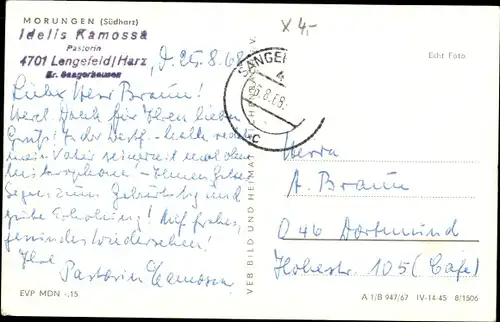 MORUNGEN (Südharz)
Idelis Ramossa
Pastorin
4701 Lengefeld/Harz
Kr. Sangerhausen
x 4,-
Echt Foto
d. 25.8.68
SANGER
6.8.68
Lieber Herr Braun!
Herzl. Dank für Ihren lieben
Gruß! In der Westf.-halle redete
mein Vater seinerzeit mal ohne
Mikrophone! – Ihnen Gottes
Segen zum Geburtstag und
gute Erholung! Auf frohes,
gesundes Wiedersehen!
Ihre
Pastorin
VEB BILD UND HEIMAT
Herrn
A. Braun
D 46 Dortmund
Hohestr. 105 (Cafe)
EVP MDN -,15
A 1/B 947/67 IV-14-45 8/1506